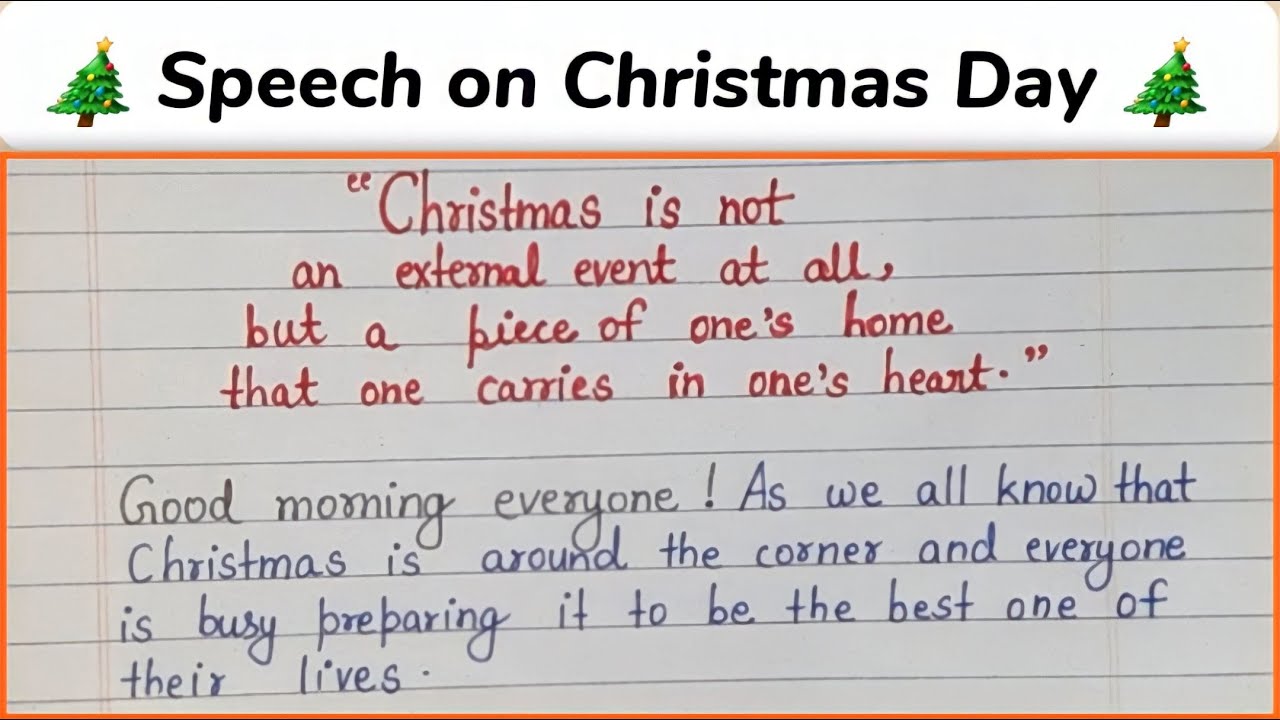 🎄 Speech on Christmas Day 🎄
“Christmas is not
an external event at all,
but a piece of one's home
that one carries in one's heart.”
Good morning everyone! As we all know that
Christmas is around the corner and everyone
is busy preparing it to be the best one of
their lives.